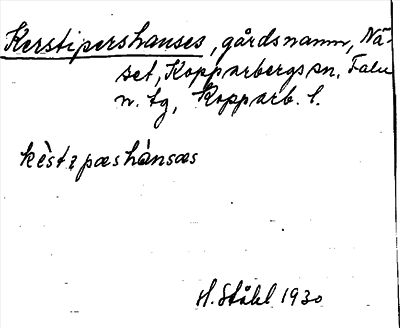 Kerstipershanses, gårdsnamn, Nä-
set, Kopparbergs sn, Falu
n. tg, Kopparb. l.
kèstɩpæshánsæs
H. Ståhl 1930